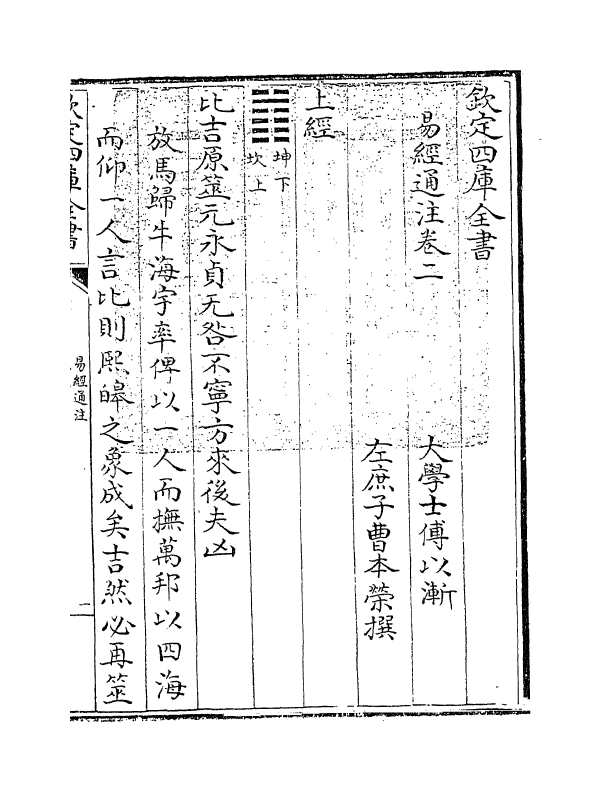 欽定四庫全書
易經通注卷二
大學士傅以漸
左庶子曹本榮撰
上經
坤下
坎上
比吉原筮元永貞无咎不寧方來後夫凶
放馬歸牛海宇率俾以一人而撫萬邦以四海
而仰一人言比則熙皥之象成矣吉然必再筮
欽定四庫全書
易經通注